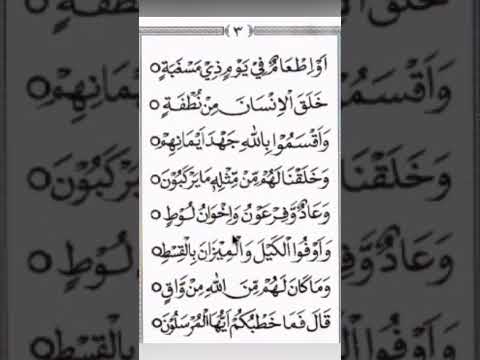 ٣
اَوْ اِطْعَامٌ فِيْ يَوْمٍ ذِيْ مَسْغَبَةٍ ○
خَلَقَ الْاِنْسَانَ مِنْ نُّطْفَةٍ ○
وَاَقْسَمُوْا بِاللهِ جَهْدَ اَيْمَانِهِمْ ○
وَخَلَقْنَا لَهُمْ مِّنْ مِّثْلِهٖ مَا يَرْكَبُوْنَ ○
وَعَادٌ وَّفِرْعَوْنُ وَاِخْوَانُ لُوْطٍ ○
وَاَوْفُوا الْكَيْلَ وَالْمِيْزَانَ بِالْقِسْطِ ○
وَمَا كَانَ لَهُمْ مِّنَ اللهِ مِنْ وَّاقٍ ○
قَالَ فَمَا خَطْبُكُمْ اَيُّهَا الْمُرْسَلُوْنَ ○